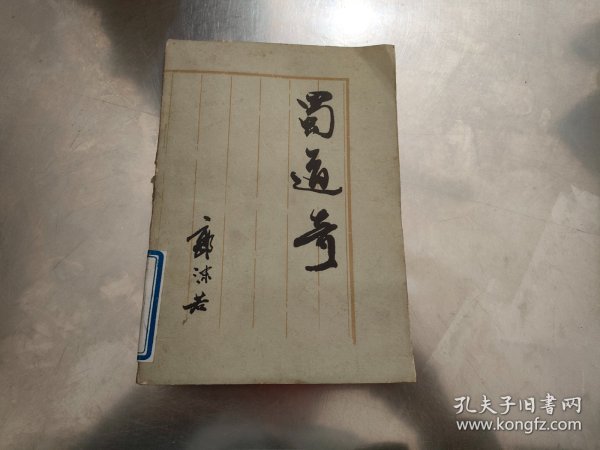 蜀道奇
郭沫若
孔夫子旧书网
www.kongfz.com